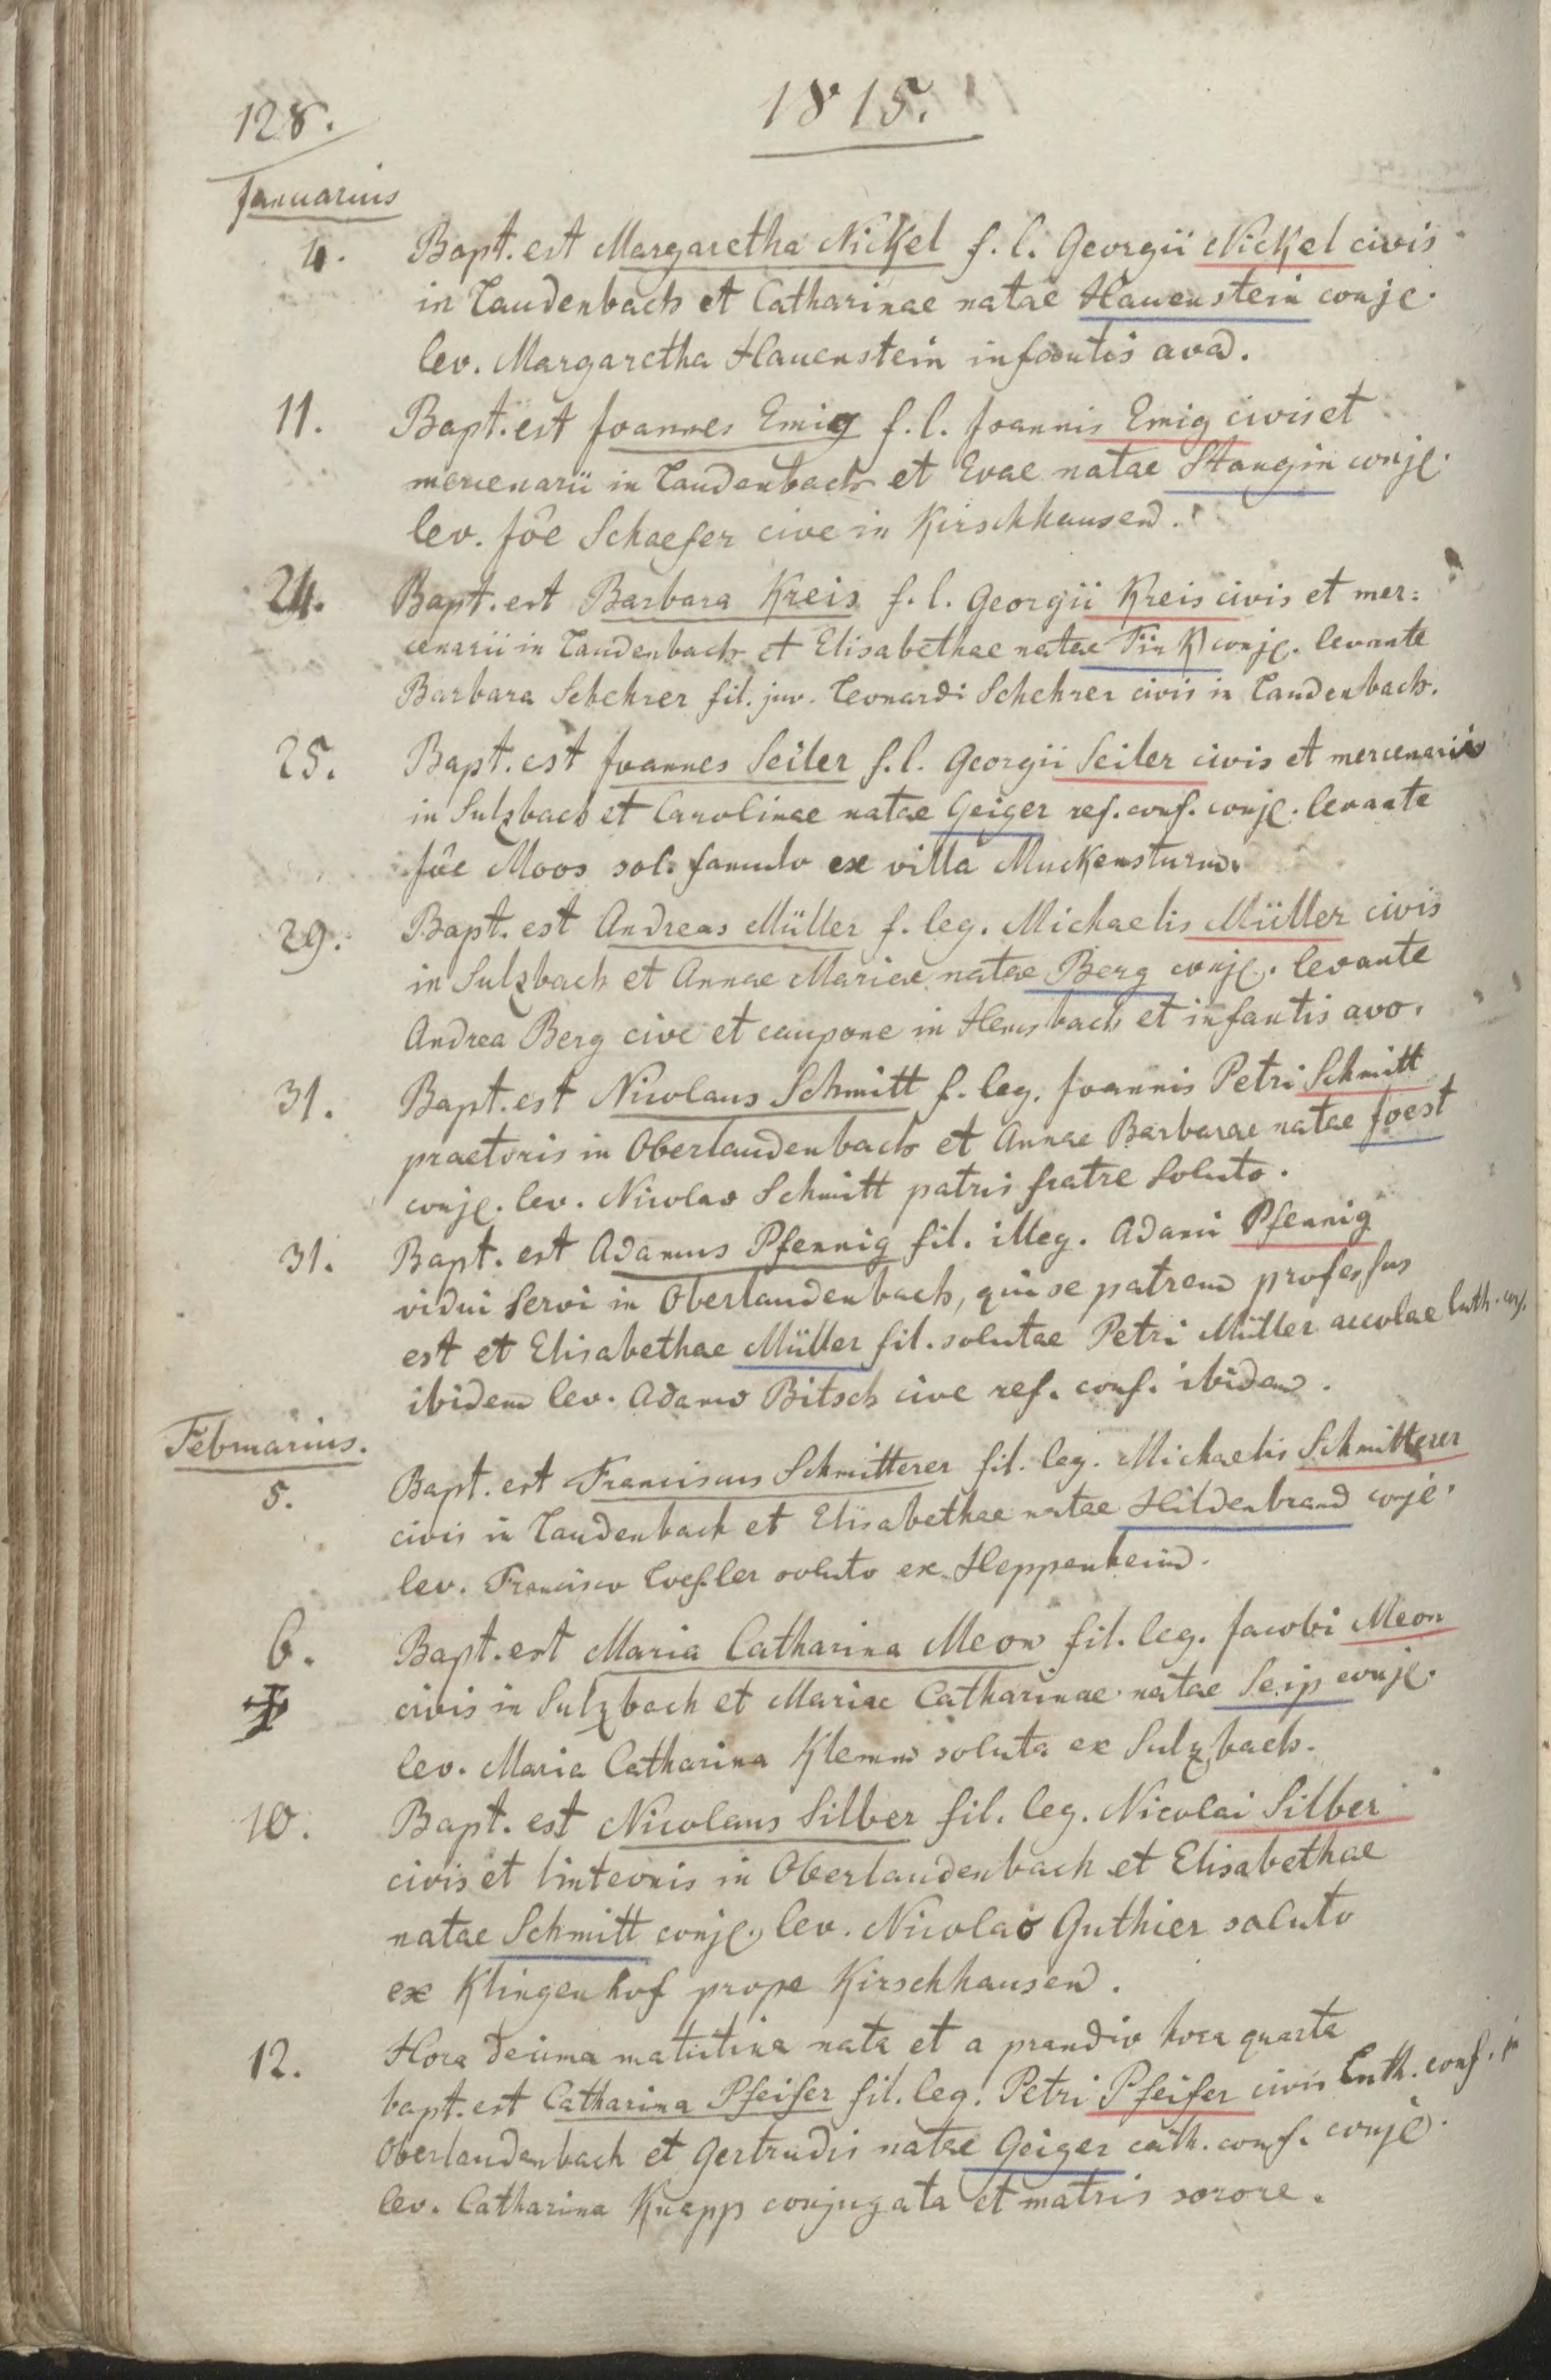 128.
1815.
Januarius
4. Bapt. est Margaretha Nickel f. l. Georgii Nickel civis
in Laudenbach et Catharinae natae Hauenstein conjc.
lev. Margaretha Hauenstein infantis ava.
11. Bapt. est Joannes Emig f. l. Joannis Emig civis et
mercenarii in Laudenbach et Evae natae Stangin conjc.
lev. Jôe Schaefer cive in Kirschhausen.
24. Bapt. est Barbara Kreis f. l. Georgii Kreis civis et mer:
cenarii in Laudenbach et Elisabethae natae Fink conjc. levante
Barbara Schehrer fil. juv. Leonardi Schehrer civis in Laudenbach.
25. Bapt. est Joannes Seiler f. l. Georgii Seiler civis et mercenarii
in Sulzbach et Carolinae natae Geiger ref. conf. conjc. levante
Jôe Moos sol. famulo ex villa Muckensturm.
29. Bapt. est Andreas Müller f. leg. Michaelis Müller civis
in Sulzbach et Annae Mariae natae Berg conjc. levante
Andrea Berg cive et caupone in Hemsbach et infantis avo.
31. Bapt. est Nicolaus Schmitt f. leg. Joannis Petri Schmitt
praetoris in Oberlaudenbach et Annae Barbarae natae Joest
conjc. lev. Nicolao Schmitt patris fratre soluto.
31. Bapt. est Adamus Pfennig fil. illeg. Adami Pfennig
vidui servi in Oberlaudenbach, qui se patrem professus
est et Elisabethae Müller fil. solutae Petri Müller accolae luth. conf.
ibidem lev. Adamo Bitsch cive ref. conf. ibidem.
Februarius.
5. Bapt. est Franciscus Schmitterer fil. leg. Michaelis Schmitterer
civis in Laudenbach et Elisabethae natae Hildenbrand conjc.
lev. Francisco Loeffler soluto ex Heppenheim.
6. Bapt. est Maria Catharina Meon fil. leg. Jacobi Meon
civis in Sulzbach et Mariae Catharinae natae Seip conjc.
lev. Maria Catharina Klemm soluta ex Sulzbach.
10. Bapt. est Nicolaus Silber fil. leg. Nicolai Silber
civis et linteonis in Oberlaudenbach et Elisabethae
natae Schmitt conjc., lev. Nicolao Guthier soluto
ex Klingenhof prope Kirschhausen.
12. Hora decima matutina nata et a prandio hora quarta
bapt. est Catharina Pfeifer fil. leg. Petri Pfeifer civis Luth. conf. in
Oberlaudenbach et Gertrudis natae Geiger cath. conf. conjc.
lev. Catharina Knapp conjugata et matris sorore.